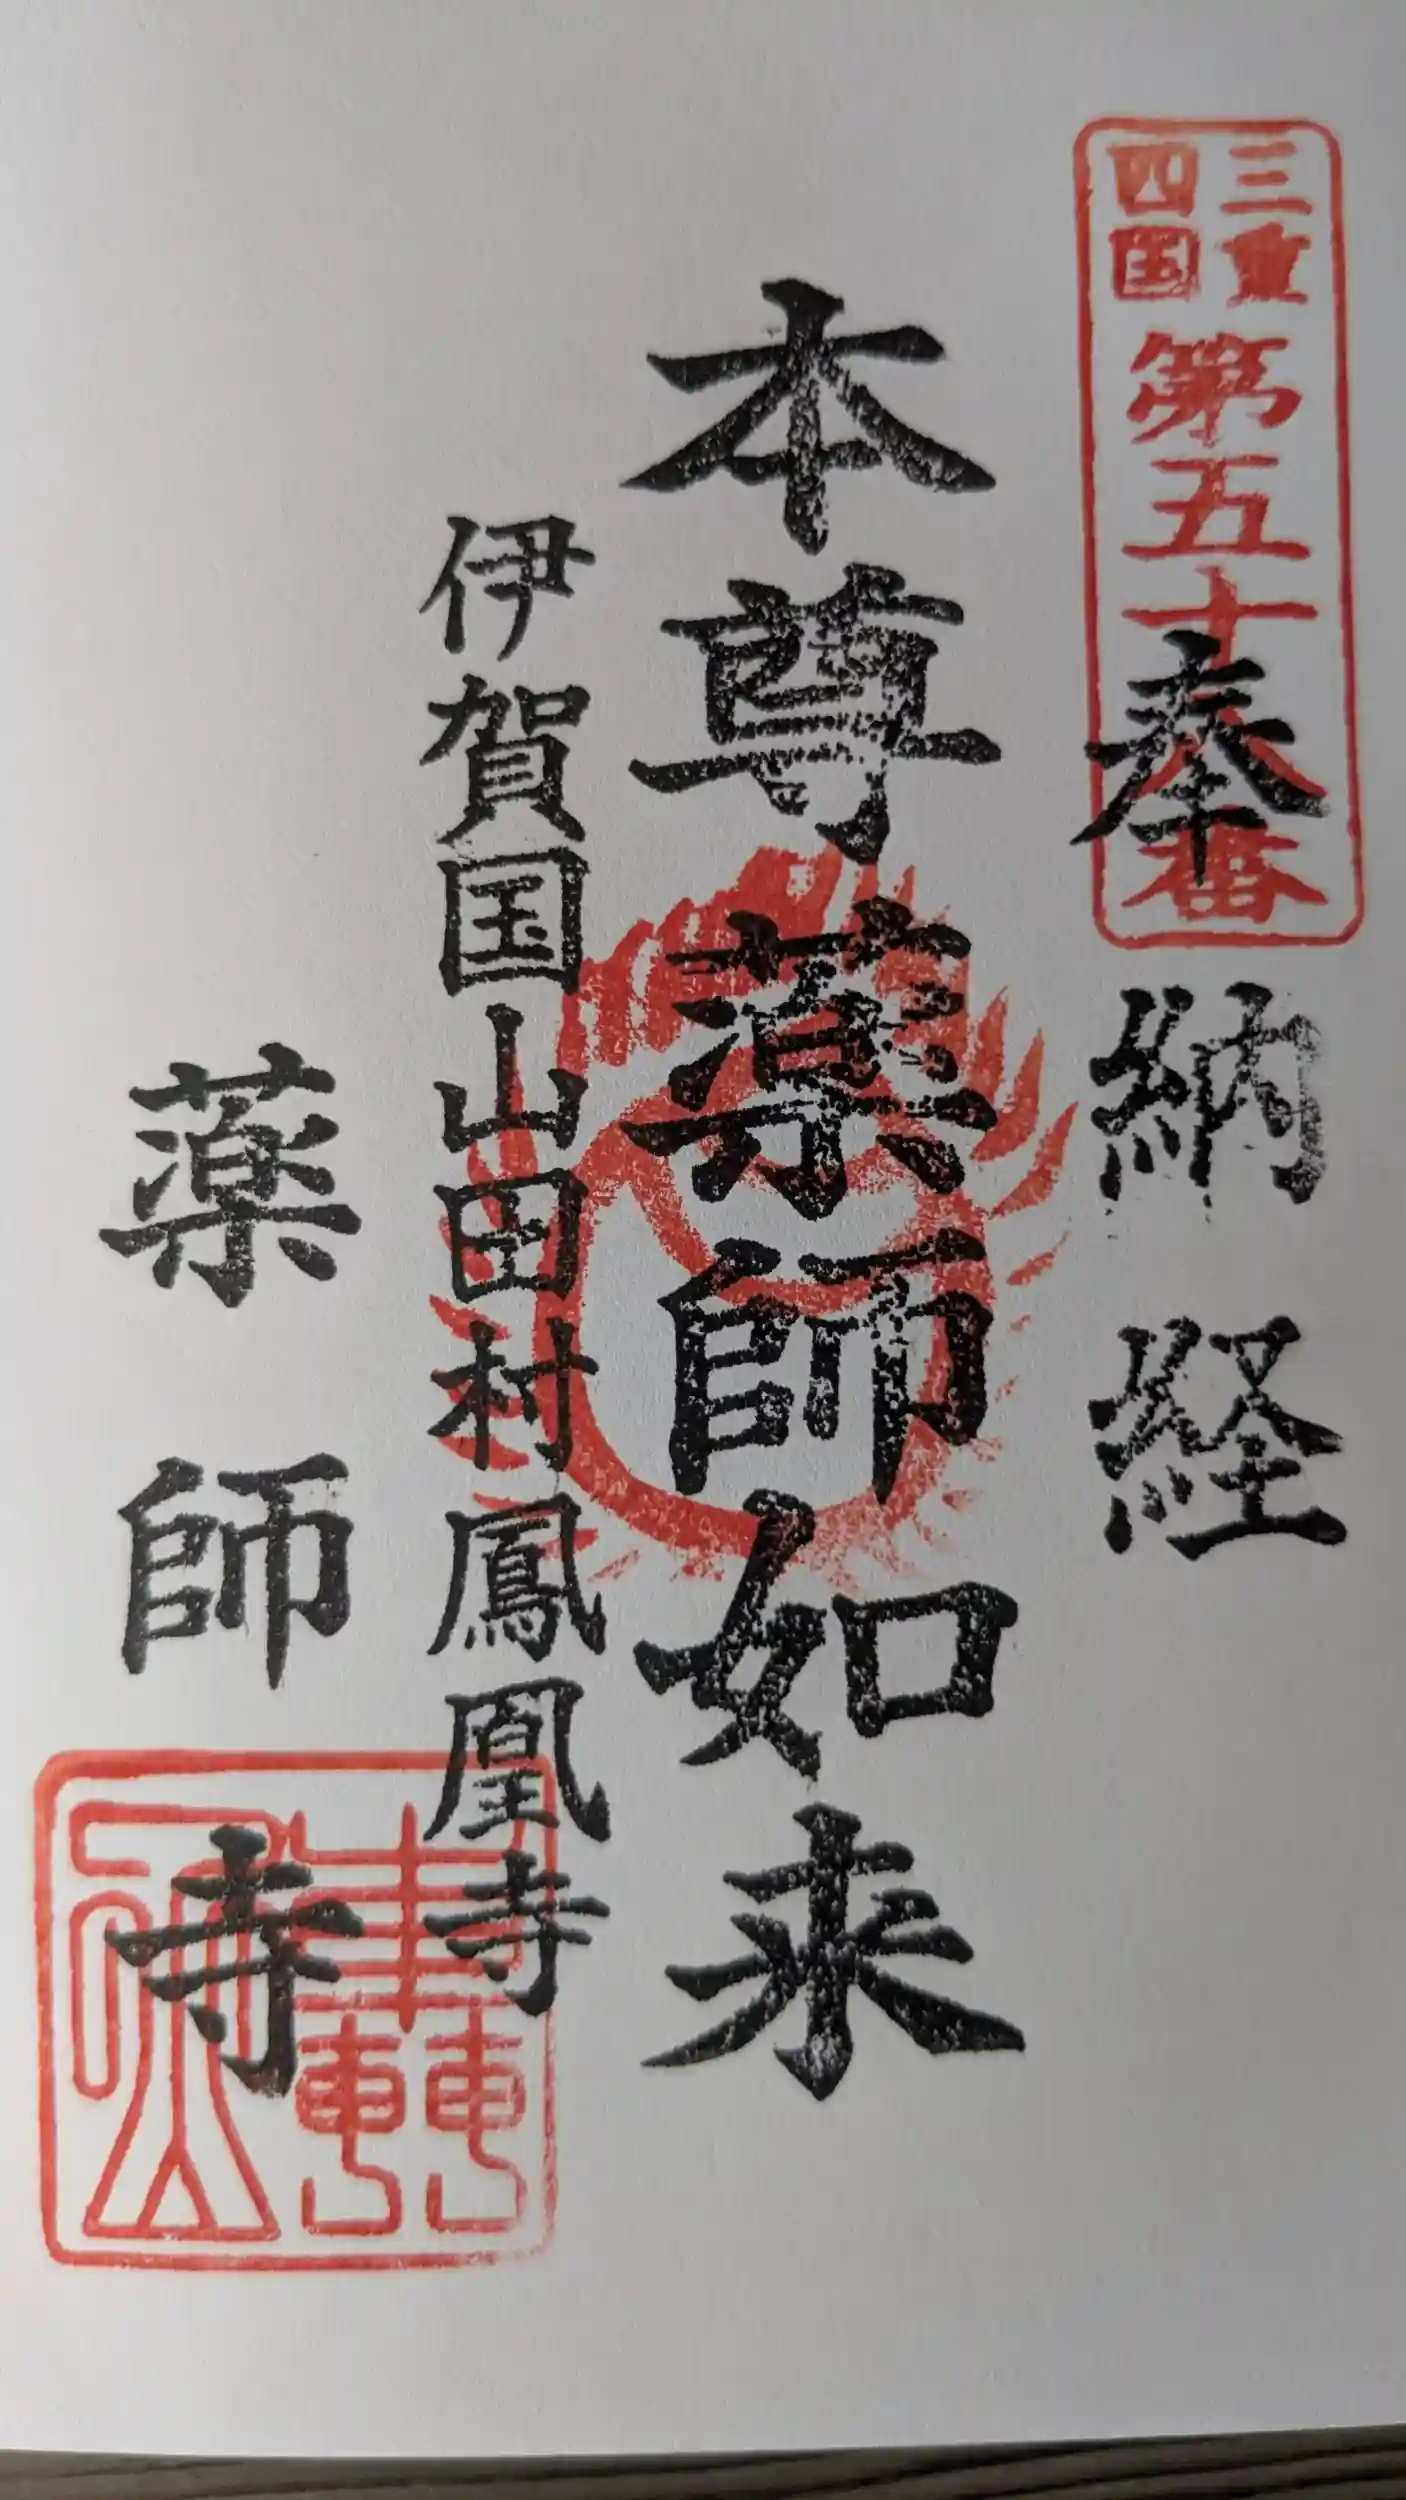 三重
四国
第五十八番
奉納経
本尊薬師如来
伊賀国山田村鳳凰寺
薬師寺